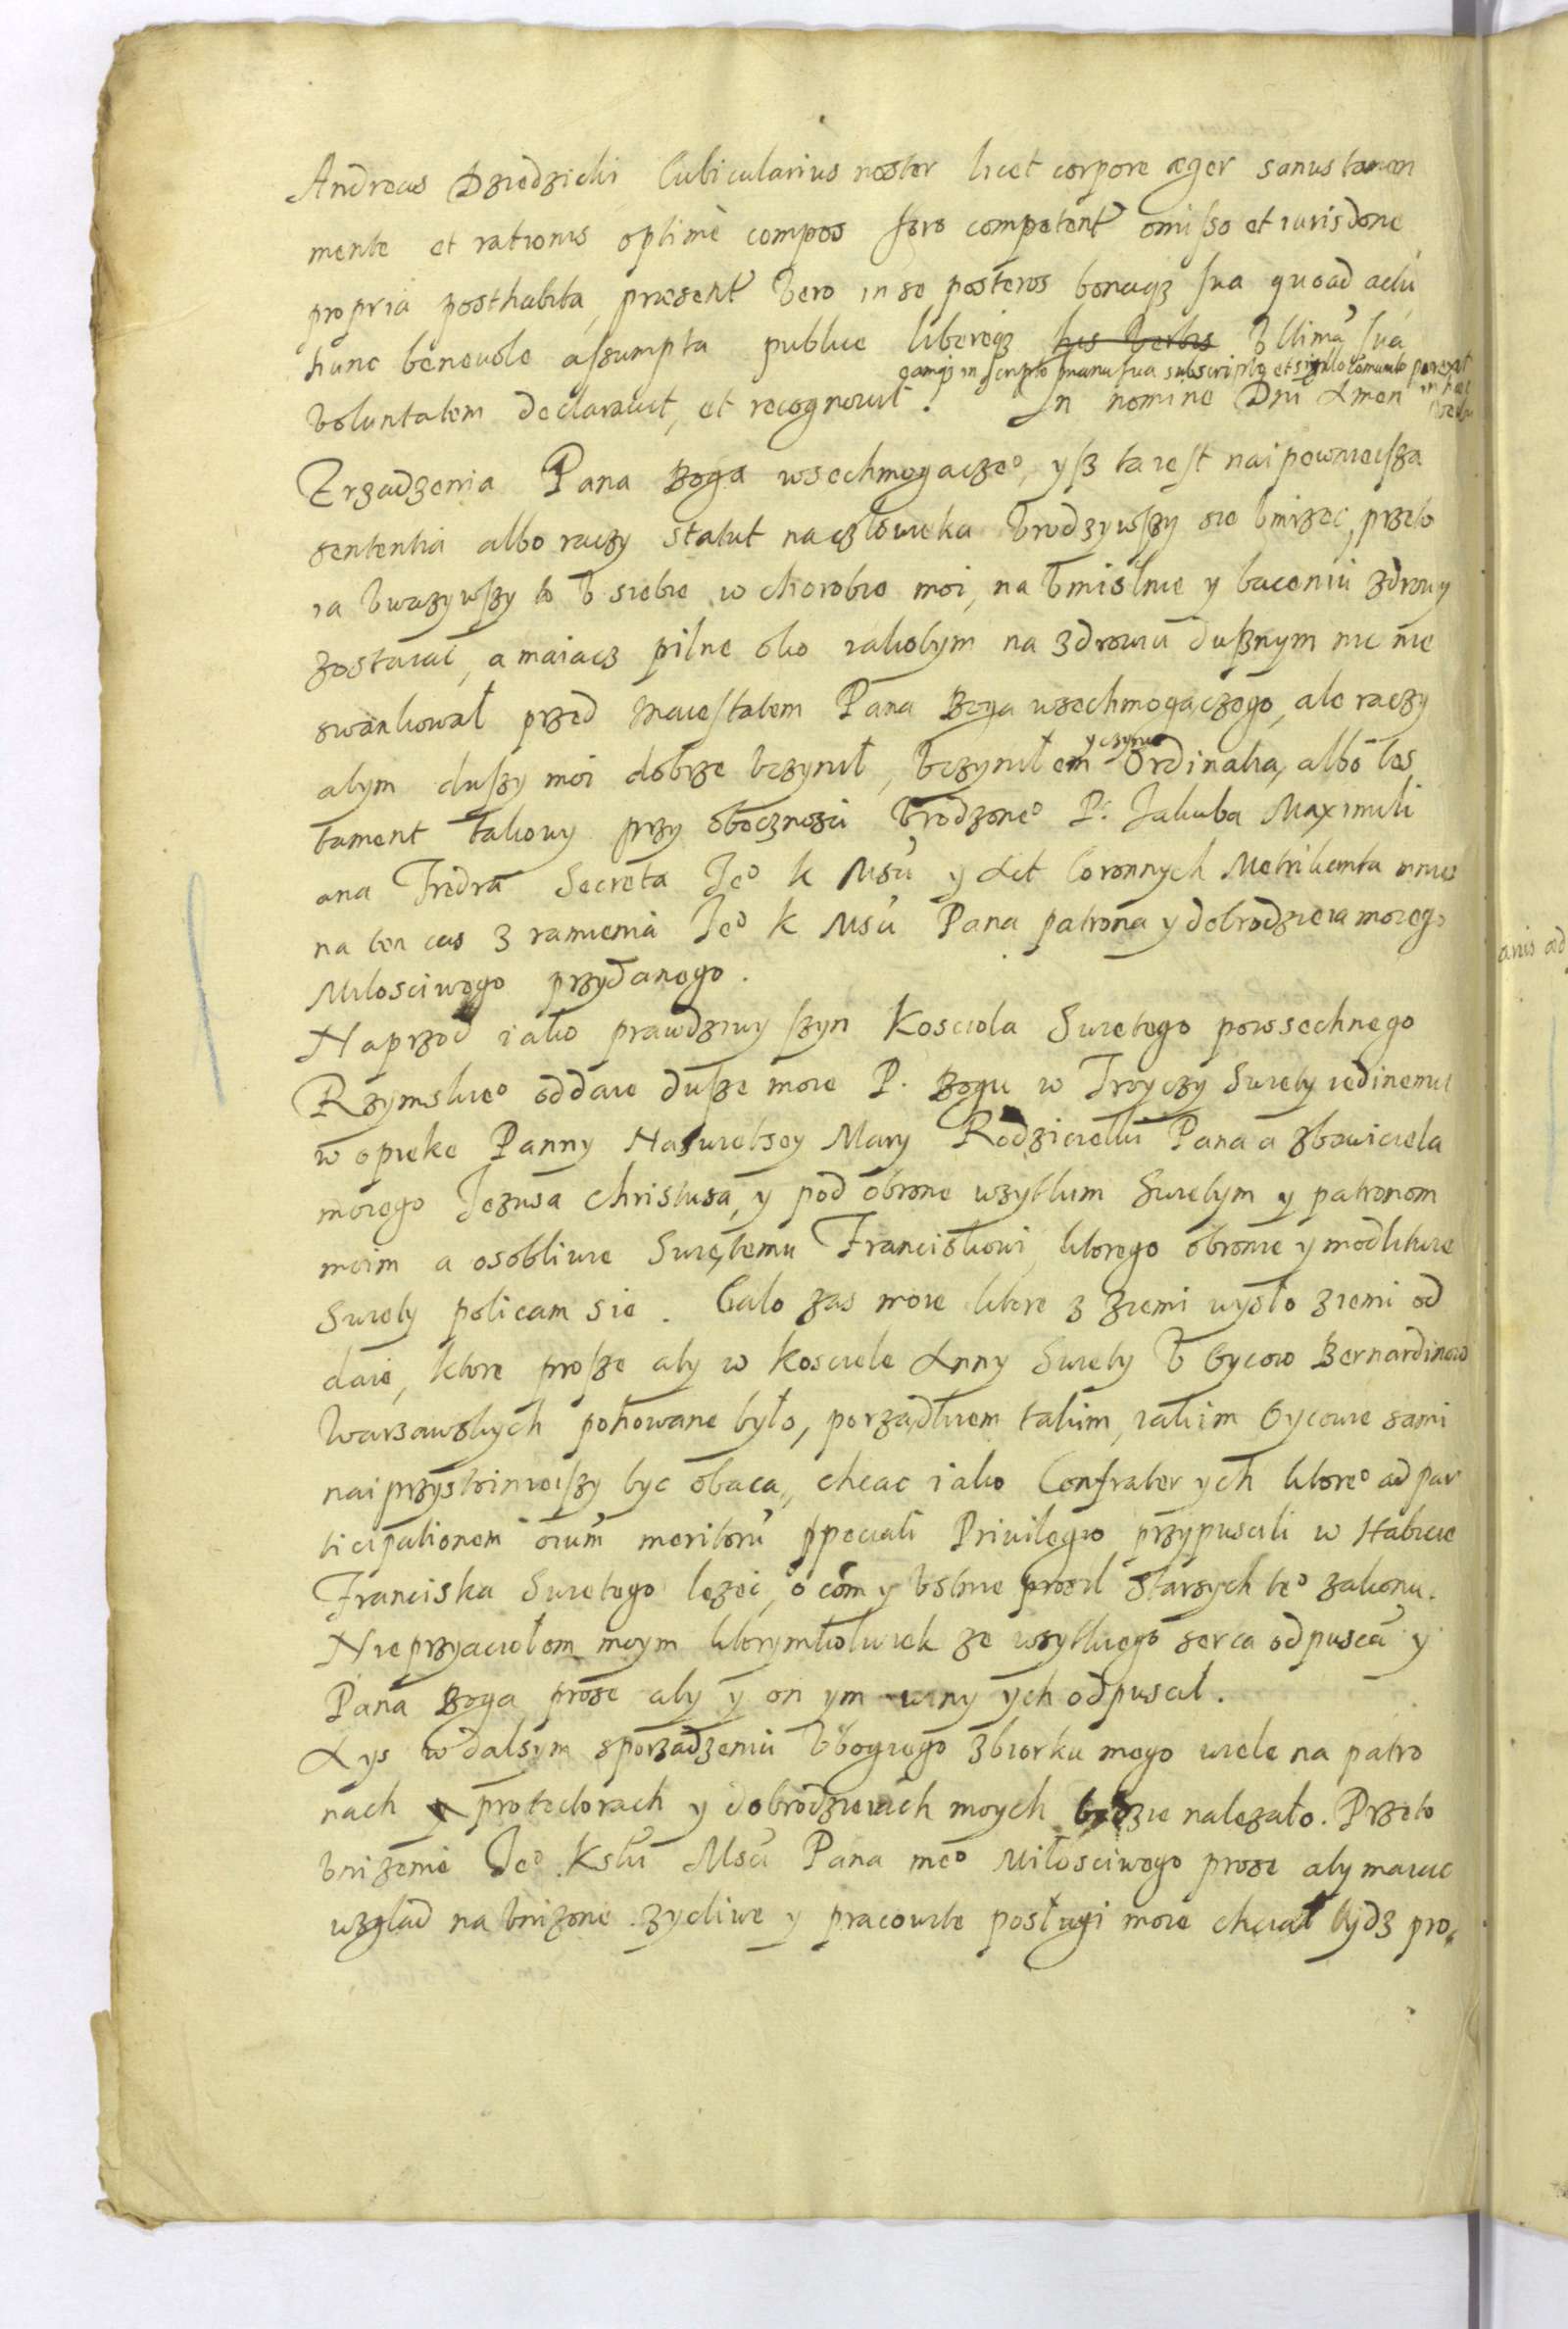 Andreas Dziedzicki Cubicularius noster licet corpore æger sanus tamen
mente et rationis optimè compos foro competenti omisso et iurisdone
propria posthabita, præsenti vero in se posteros bonaqz sua quoad actu
hunc beneuole assumpta publice libereqz his verbis Vltimā sua
eamqz in scripto manu sua subscriptā et sigillo comunito porrexit
in hæc verba
voluntatem declarauit, et recognouit. In nomine Dni Amen
Z rzadzenia Pana Boga wsechmogaczeo, ysz ta iest naipewnieisza
sententia albo raczy statut na człowieka vrodzywszy sie vmrzec, przeto
ia vwazywszy to v siebie w chorobie moi, na vmislnie y baceniu zdrowy
zostaiac, a maiacz pilne oko iakobym na zdrowiu dusznym nic nie
swankował przed maiestatem Pana Boga wsechmogaczego, ale raczy
abym duszy moi dobrze vczynił, vczyniłem y czynie Ordinatia, albo tes
tament takowy przy obecznosci vrodzoneo P. Jakuba Maximili
ana Fredra Secreta Jeo K Msci y Act Coronnych Metrikanta mnie
na ten cas z ramienia Jeo K Msci Pana patrona y dobrodzieia moiego
Milosciwego przydanego.
Naprzod iako prawdziwy szyn Kosciola Swietego powsechnego
Rzymskieo oddaie dusze moie P. Bogu w Troyczy Swiety iedinemu
w opieke Panny Naswietsey Mary Rodzicielki Pana a zbawiciela
moiego Jezusa Christusa, y pod obrone wszytkim Swietym y patronom
moim a osobliwie Swiętemu Franciskowi, ktorego obronie y modlitwie
Swiety policam sie. Cało zas moie ktore z ziemi wysło ziemi od
daie, ktore prosze aby w kosciele Anny Swiety v Oycow Bernardinow
Warsawskych pohowane było, porzadkiem takim, iakim Oycowie sami
naiprzystoinieiszy byc obaca, chcac iako Confrater ych ktoreo ad par
ticipationem oium meritoru speciali Priuilegio przypuscili w Habicie
Franciska Swietego lezec, o com y vstnie prosil starsych teo zakonu.
Nieprzyaciołom moym ktorymkolwiek ze wsytkiego serca odpuscam y
Pana Boga prose aby y on ym winy ych odpuscal.
Ays w dalsym sporzadzeniu vbogiego zbiorku mego wiele na patro
nach y protectorach y dobrodzieiach moych bedzie nalezało. Przeto
vnizenie Jeo Kslki Msci Pana meo Miłosciwego prose aby maiac
wzglad na vnizone zycliwe y pracowite posługi moie chciał bydz pro,